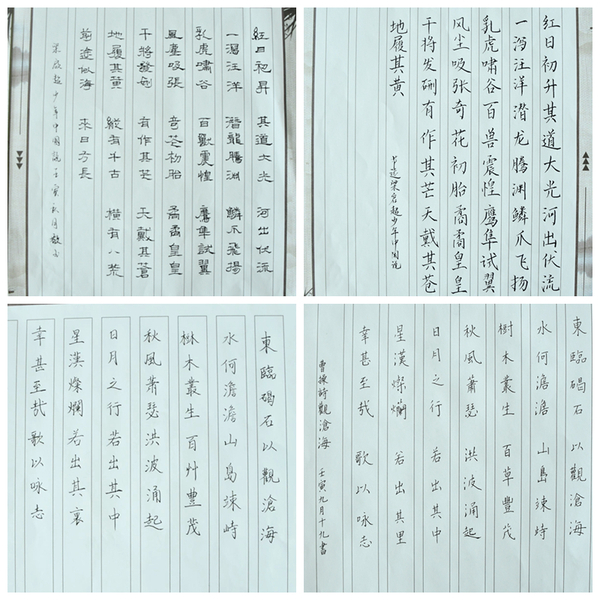 紅日初昇 其道大光 河出伏流
一瀉汪洋 潛龍騰淵 鱗爪飛揚
乳虎嘯谷 百獸震惶 鷹隼試翼
風塵吸張 奇花初胎 矞矞皇皇
干將發硎 有作其芒 天戴其蒼
地履其黃 縱有千古 橫有八荒
前途似海 來日方長
梁啟超少年中國說 壬寅秋月
红日初升其道大光河出伏流
一泻汪洋潜龙腾渊鳞爪飞扬
乳虎啸谷百兽震惶鹰隼试翼
风尘吸张奇花初胎矞矞皇皇
干将发硎有作其芒天戴其苍
地履其黄
节选梁启超少年中国说
東臨碣石以觀滄海
水何澹澹山島竦峙
樹木叢生百艸豐茂
秋風蕭瑟洪波涌起
日月之行若出其中
星漢燦爛若出其裏
幸甚至哉歌以咏志
東臨碣石 以觀滄海
水何澹澹 山島竦峙
樹木叢生 百草豐茂
秋風蕭瑟 洪波涌起
日月之行 若出其中
星漢燦爛 若出其里
幸甚至哉 歌以咏志
曹操詩觀滄海 壬寅九月十九書